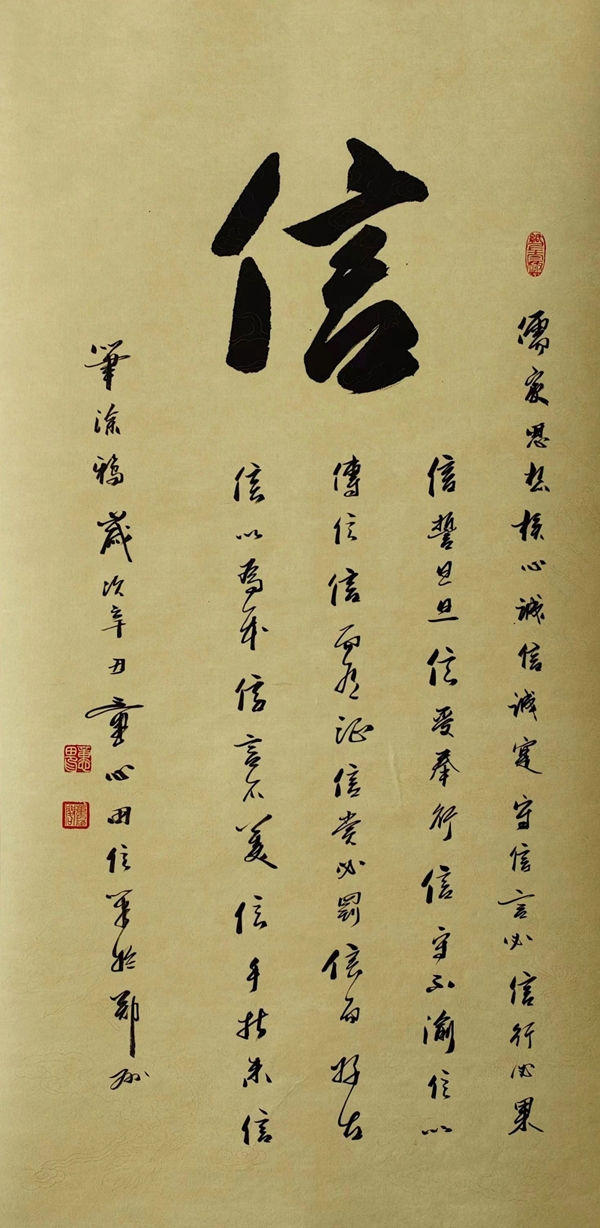 信
儒家思想核心誠信誠实守信言必信行必果
信誓旦旦信受奉行信守不渝信以
傳信信而有证信赏必罰信而好古
信以為本信言不美信手拈来信
筆涂鸦歲次辛丑童心田信筆於鄭州